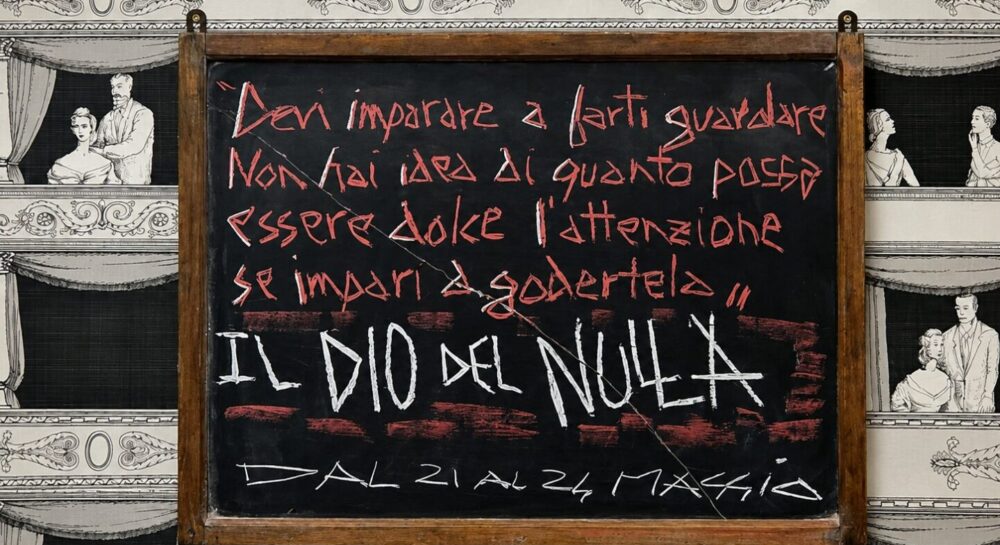 "Devi imparare a farti guardare
Non hai idea di quanto possa
essere dolce l'attenzione
se impari a godertela„
IL DIO DEL NULLA
DAL 21 AL 24 MAGGIO